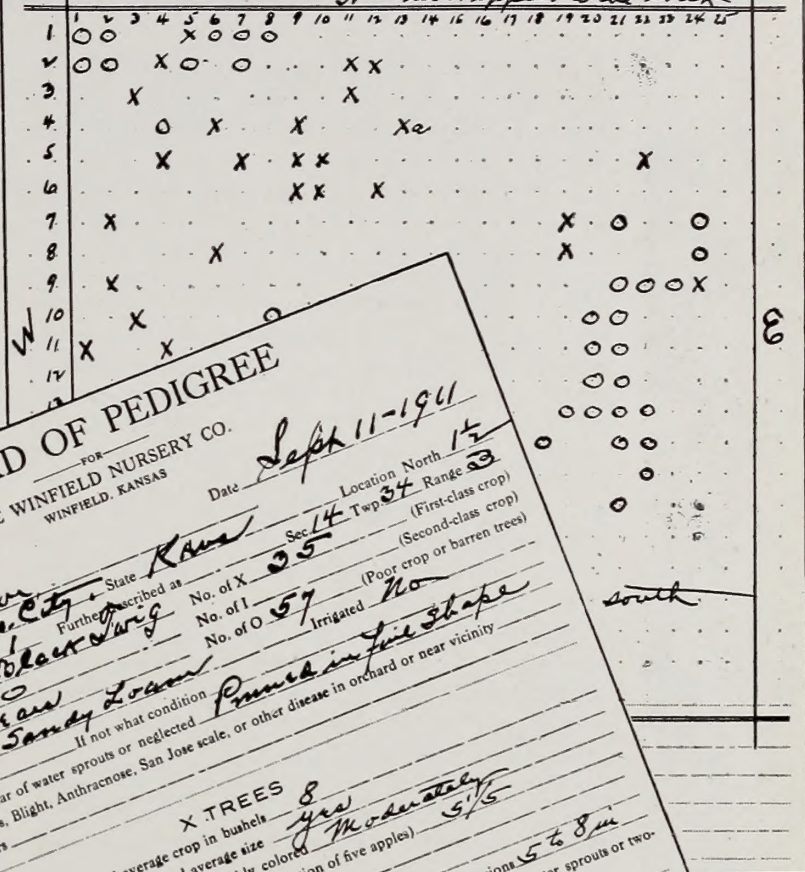 1 2 3 4 5 6 7 8 9 10 11 12 13 14 15 16 17 18 19 20 21 22 23 24 25
1 O O X O O O
2 O O X O O X X
3 X X
4 O X X Xa
5 X X X X X
6 X X X
7 X X O O
8 X X O
9 X O O O X
W 10 X O O O
11 X X O O
12 O O
13 O O O O
O O O
O
O
E
south
D OF PEDIGREE
FOR
WINFIELD NURSERY CO.
WINFIELD, KANSAS
Date Sept 11-1911
Location North 1½
Sec 14 Twp 34 Range 3
City, State Kans
Further described as
No. of X 35 (First-class crop)
Black Twig
No. of I (Second-class crop)
No. of O 57 (Poor crop or barren trees)
Irrigated No
Sandy Loam
If not what condition Pruned in Fair Shape
ar of water sprouts or neglected
s, Blight, Anthracnose, San Jose scale, or other disease in orchard or near vicinity
X TREES
average crop in bushels 8
average size yes
colored Moderately
tion of five apples)
5 to 8 in
er sprouts or two-